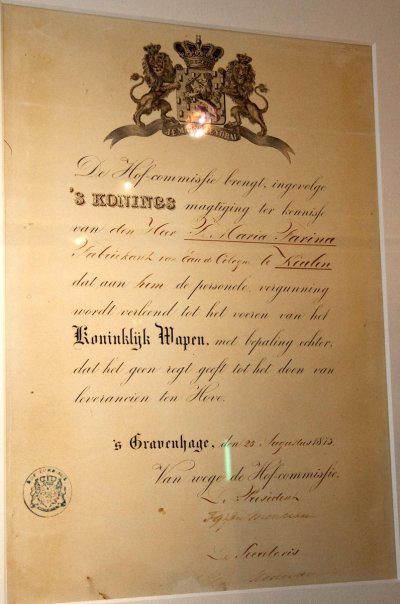 JE MAINTIENDRAI
De Hof-commissie brengt, ingevolge
'S KONINGS magtiging ter kennisse
van den Heer J. Maria Farina
Fabrikant van Eau de Cologne te Keulen
dat aan hem de personele vergunning
wordt verleend tot het voeren van het
Koninklijk Wapen, met bepaling echter,
dat het geen regt geeft tot het doen van
leverancien ten Hove.
's Gravenhage, den 25 Augustus 1873
Van wege de Hof-commissie.
De President
De Secretaris